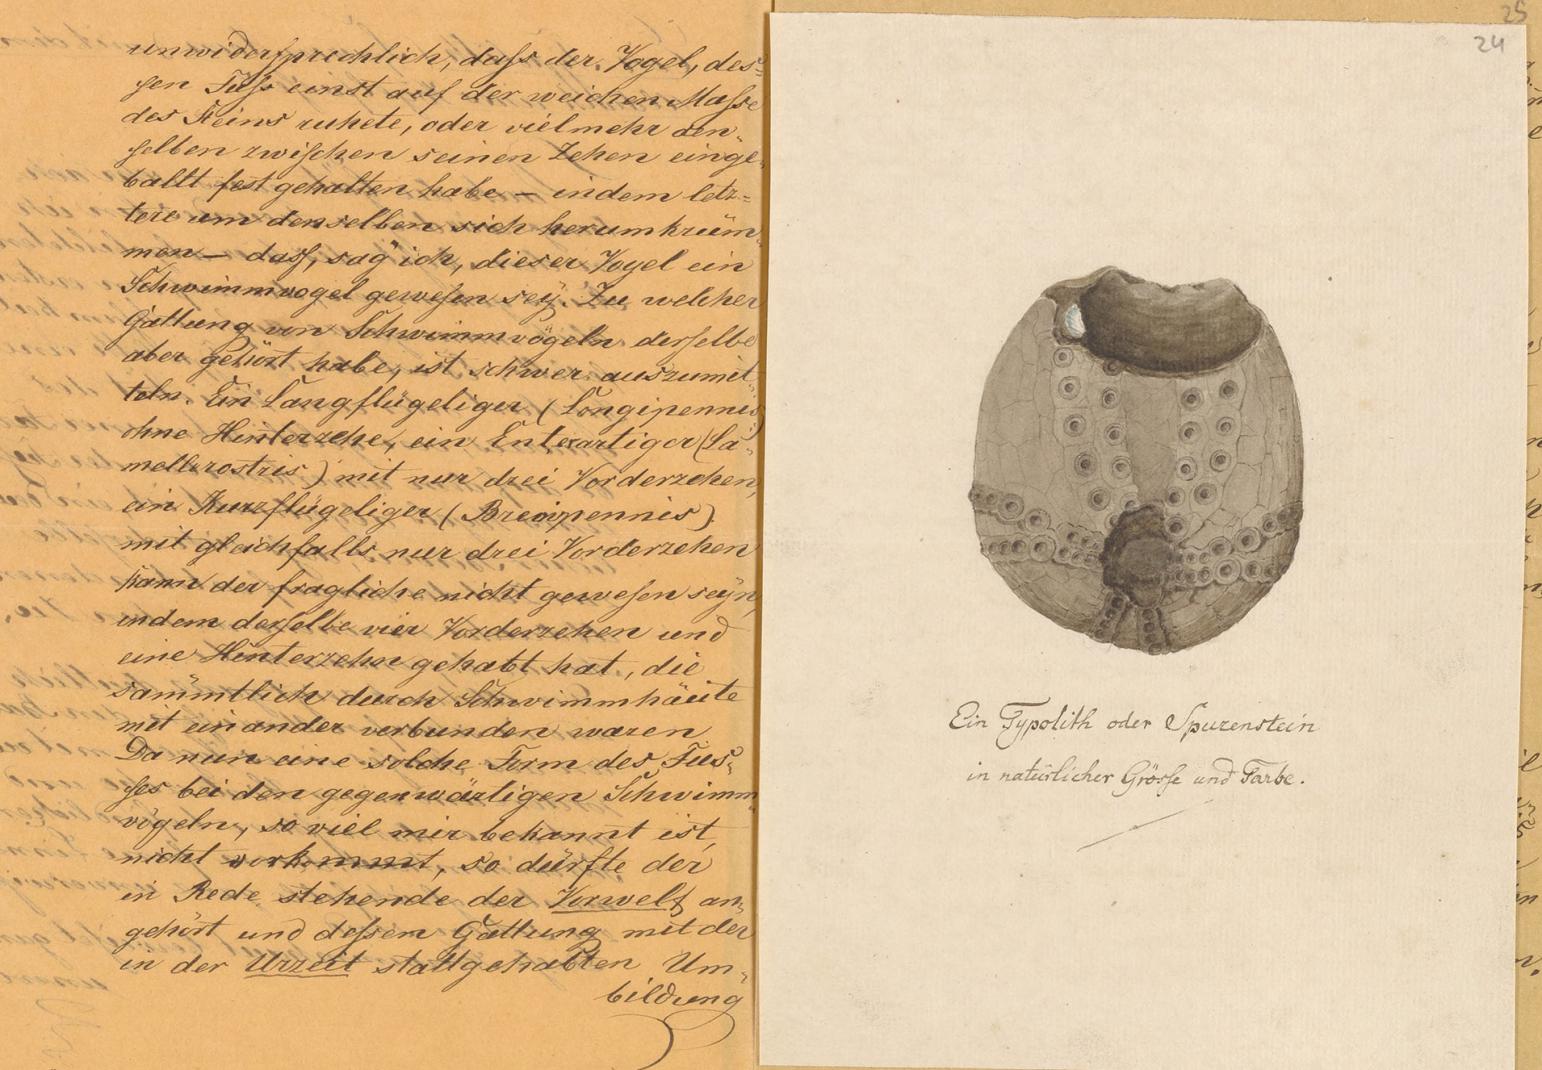 unwidersprechlich, dass der Vogel, des=
sen Fuss einst auf der weichen Masse
des Steins ruhete, oder vielmehr den=
selben zwischen seinen Zehen einge=
ballt fest gehalten habe — indem letz=
tere um denselben sich herumkrüm=
men — dass, sag' ich, dieser Vogel ein
Schwimmvogel gewesen seÿ. Zu welcher
Gattung von Schwimmvögeln derselbe
aber gehört habe, ist schwer auszumit=
teln. Ein Langflügeliger (Longipennis)
ohne Hinterzehe, ein Entenartiger (La=
mellirostris) mit nur drei Vorderzehen,
ein Kurzflügeliger (Brevipennis)
mit gleichfalls nur drei Vorderzehen
kann der fragliche nicht gewesen seÿn,
indem derselbe vier Vorderzehen und
eine Hinterzehn gehabt hat, die
sämmtlich durch Schwimmhäute
mit einander verbunden waren
Da nun eine solche Form des Fus=
ses bei den gegenwärtigen Schwimm
vögeln, so viel mir bekannt ist,
nicht vorkommt, so dürfte der
in Rede stehende der Vorwelt an=
gehört und dessen Gattung mit der
in der Urzeit stattgehabten Um=
bildung
25
24
Ein Typolith oder Spurenstein
in natürlicher Grösse und Farbe.